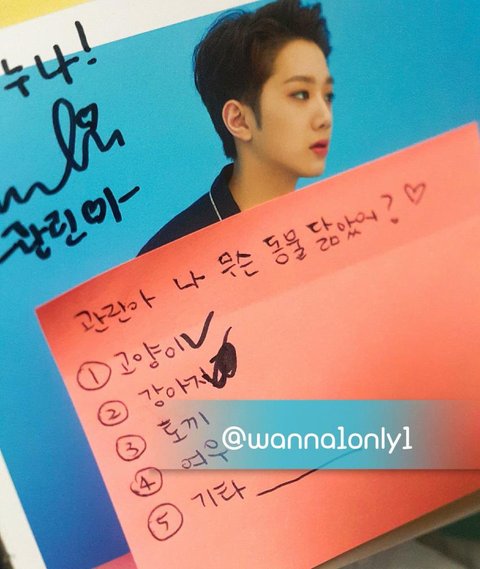 누나!
관린아
관린아 나 무슨 동물 닮았어? ♡
① 고양이 ✓
② 강아지
③ 토끼
④ 여우
@wanna1only1
⑤ 기타 ____